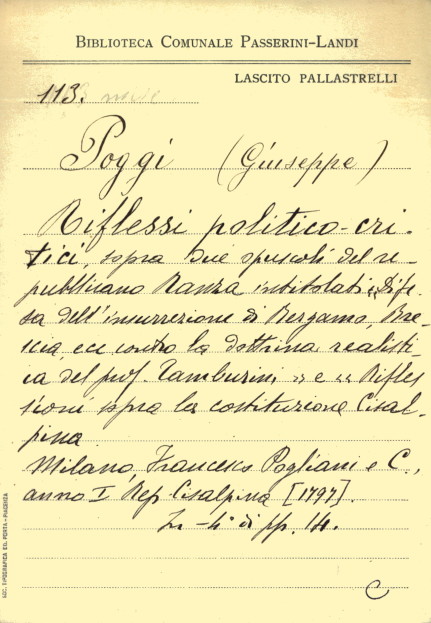 BIBLIOTECA COMUNALE PASSERINI-LANDI
LASCITO PALLASTRELLI
113.
Poggi (Giuseppe)
Riflessi politico-cri-
tici, sopra due opuscoli del re-
pubblicano Ranza intitolati „Dife
sa dell'insurrezione di Bergamo, Bre-
scia, ecc contro la dottrina realisti-
ca del prof. Tamburini „ e „ Rifles
sioni sopra la costituzione Cisal-
pina
Milano, Francesco Pogliani e C.,
anno I Rep. Cisalpina [1797].
In -4° di pp. 14.
C
SOC. TIPOGRAFICA ED. PORTA - PIACENZA